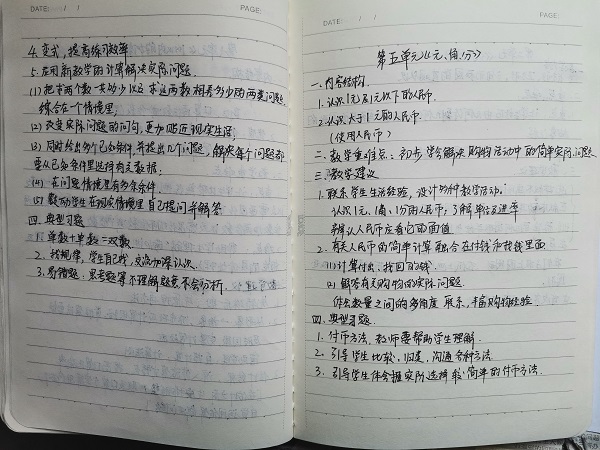 DATE: / /
PAGE:
4. 变式,提高练习效率
5. 应用新数学的计算解决实际问题.
(1) 把求两个数一共多少以及求这两数相差多少的两类问题
综合在一个情境里;
(2) 改变实际问题的问句,更加贴近现实生活;
(3) 同时给出多个已知条件,并提出几个问题,解决每个问题都
要从已知条件里选择有关数据;
(4) 在问题情境里有多余条件
(5) 鼓动学生在现实情境里自己提问并解答
四. 典型习题
1. 单数+单数=双数
2. 找规律,学生自己找,交流加深认识.
3. 易错题:思考题等不理解题意不会分析.
DATE: / /
PAGE:
第五单元《元、角、分》
一. 内容结构
1. 认识1元及1元以下的人民币.
2. 认识大于1元的人民币.
(使用人民币)
二. 教学重难点:初步学会解决购物活动中的简单实际问题
三. 教学建议
1. 联系学生生活经验,设计多种教学活动.
认识1元、1角、1分的人民币;了解单位进率
辨认人民币应看它的面值
2. 有关人民币的简单计算融合在付钱和找钱里面
(1) 计算付出、找回的钱
(2) 解答有关购物的实际问题.
体会数量之间的多角度联系,丰富购物经验
四. 典型习题.
1. 付币方法,教师要帮助学生理解.
2. 引导学生比较、归类,沟通各种方法
3. 引导学生体会据实际选择较简单的付币方法